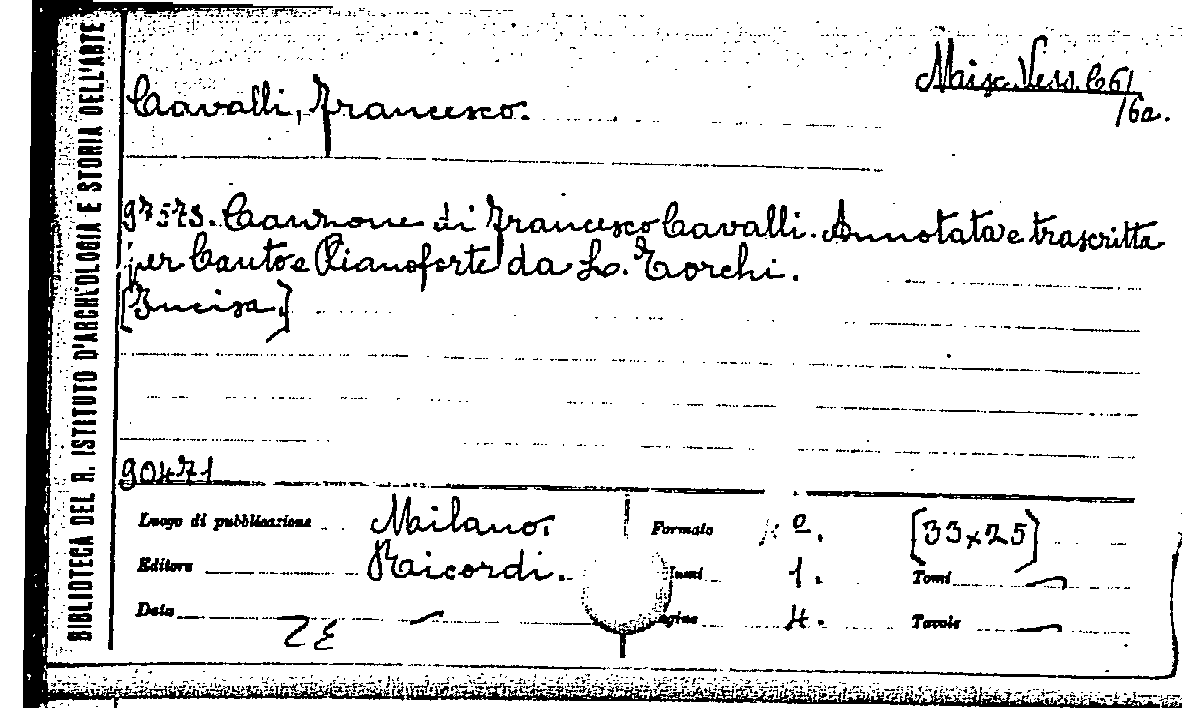 BIBLIOTECA DEL R. ISTITUTO D'ARCHEOLOGIA E STORIA DELL'ARTE
Misc. Vess. C 61/6a.
Cavalli, Francesco.
97573. Canzone di Francesco Cavalli. Annotata e trascritta
per Canto e Pianoforte da L. Torchi.
[Incisa.]
90471
Luogo di pubblicazione Milano. Formato º. [33x25]
Editore Ricordi. 1. Tomi —
Data — 4. Tavole —